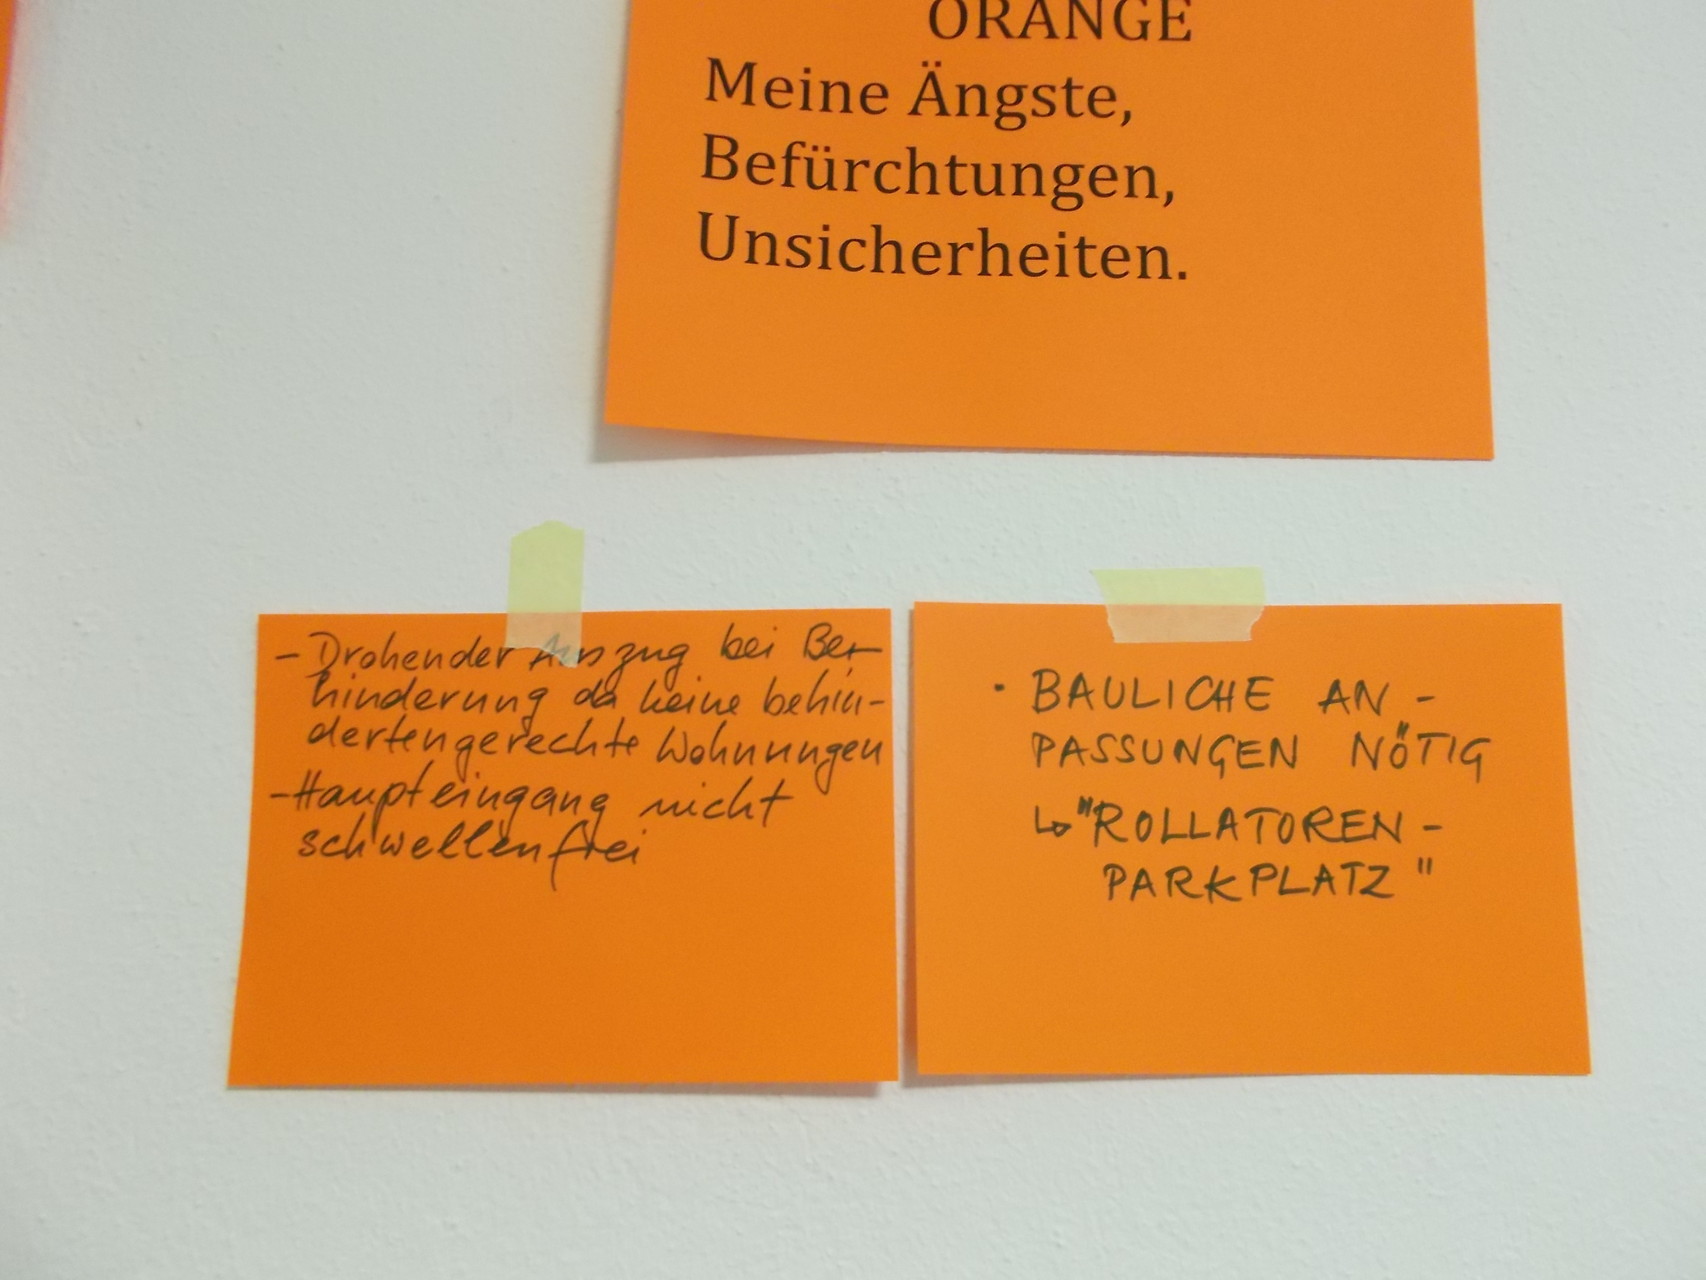 ORANGE
Meine Ängste,
Befürchtungen,
Unsicherheiten.
- Drohender Auszug bei Be-
hinderung da keine behin-
dertengerechte Wohnungen
- Haupteingang nicht
schwellenfrei
• BAULICHE AN-
PASSUNGEN NÖTIG
↳ "ROLLATOREN-
PARKPLATZ"